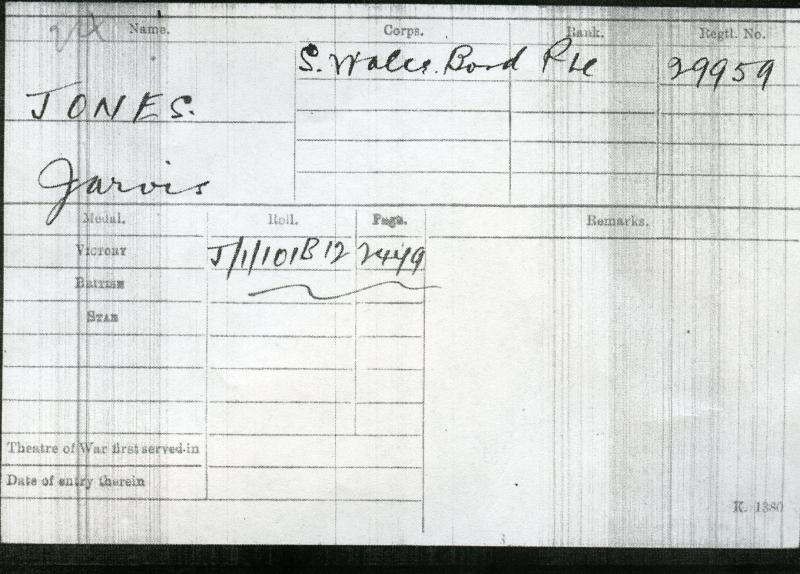 Name. Corps. Rank. Regtl. No.
S. Wales. Bord Pte 29959
JONES.
Jarvis
Medal. Roll. Page. Remarks.
VICTORY J/1/101B12 2449
BRITISH
STAR
Theatre of War first served in
Date of entry therein
K. 1380